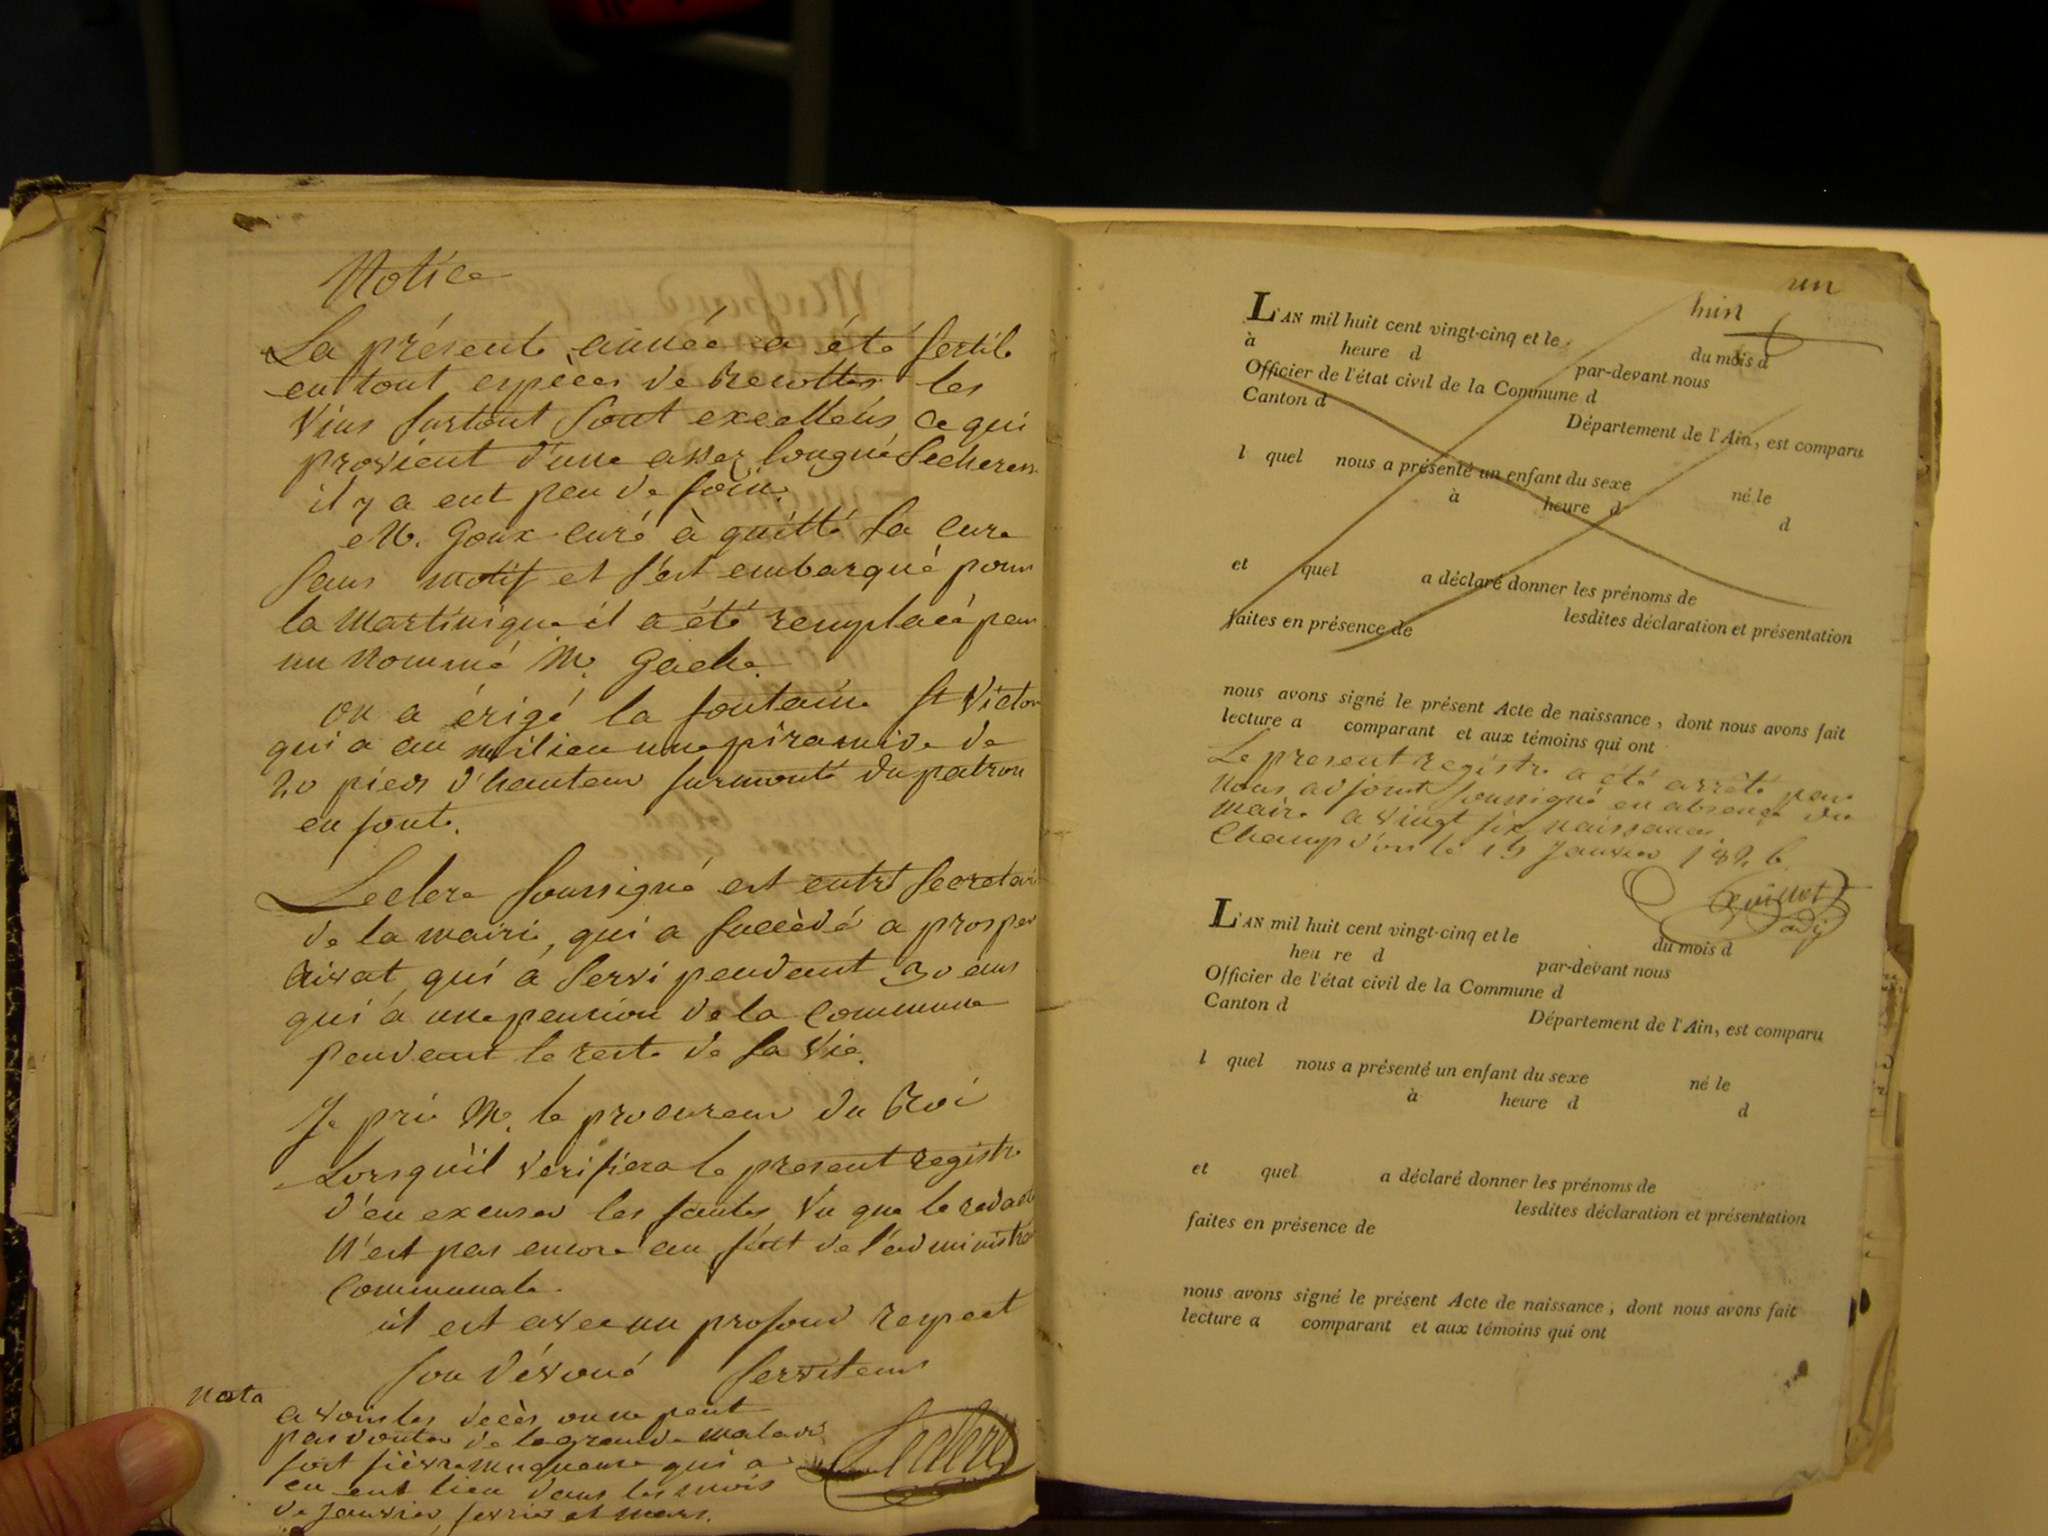 Notice
La présente année a été fertile
en tout especes de Recoltes les
Vins surtout sont excellens ce qui
provient d'une assez longue secheress
il y a eut peu de foin.
M. Goux curé à quitté sa cure
sans motif et s'est embarqué pour
la Martinique il a été remplacé par
un Nommé M. Gache.
on a érigé la fontaine St Victor
qui a au milieu une piramide de
20 pieds d'hauteur surmonté du patron
en fonte.
Leclerc soussigné est entré secretair
de la mairie, qui a succèdé a prosper
qui à servi pendant 30 ans
qui à une pension de la Commune
pendant le reste de sa Vie.
Je prie M. le procureur du Roi
Lorsqu'il verifiera le present registre
d'en excuser les fautes, Vu que le redact
N'est pas encore au fait de l'administra
Communale.
il est avec un profond respect
son dévoué serviteur
Nota
a voir les decès on ne peut
pas douter de la grande maladie
soit fièvre muqueuse qui a
eu lieu dans les mois
de Janvier, fevrier et mars.
Leclerc
un
huit
L'AN mil huit cent vingt-cinq et le du mois d
à heure d par-devant nous
Officier de l'état civil de la Commune d
Canton d Département de l'Ain, est comparu
l quel nous a présenté un enfant du sexe né le
à heure d d
et quel a déclaré donner les prénoms de
lesdites déclaration et présentation
faites en présence de
nous avons signé le présent Acte de naissance, dont nous avons fait
lecture a comparant et aux témoins qui ont
Le present registre a été arrêté par
Nous adjoint soussigné en absence du
maire a vingt six naissances.
Champd'or le 15 Janvier 1826
L'AN mil huit cent vingt-cinq et le du mois d
heu re d par-devant nous
Officier de l'état civil de la Commune d
Canton d Département de l'Ain, est comparu
l quel nous a présenté un enfant du sexe né le
à heure d d
et quel a déclaré donner les prénoms de
lesdites déclaration et présentation
faites en présence de
nous avons signé le présent Acte de naissance, dont nous avons fait
lecture a comparant et aux témoins qui ont